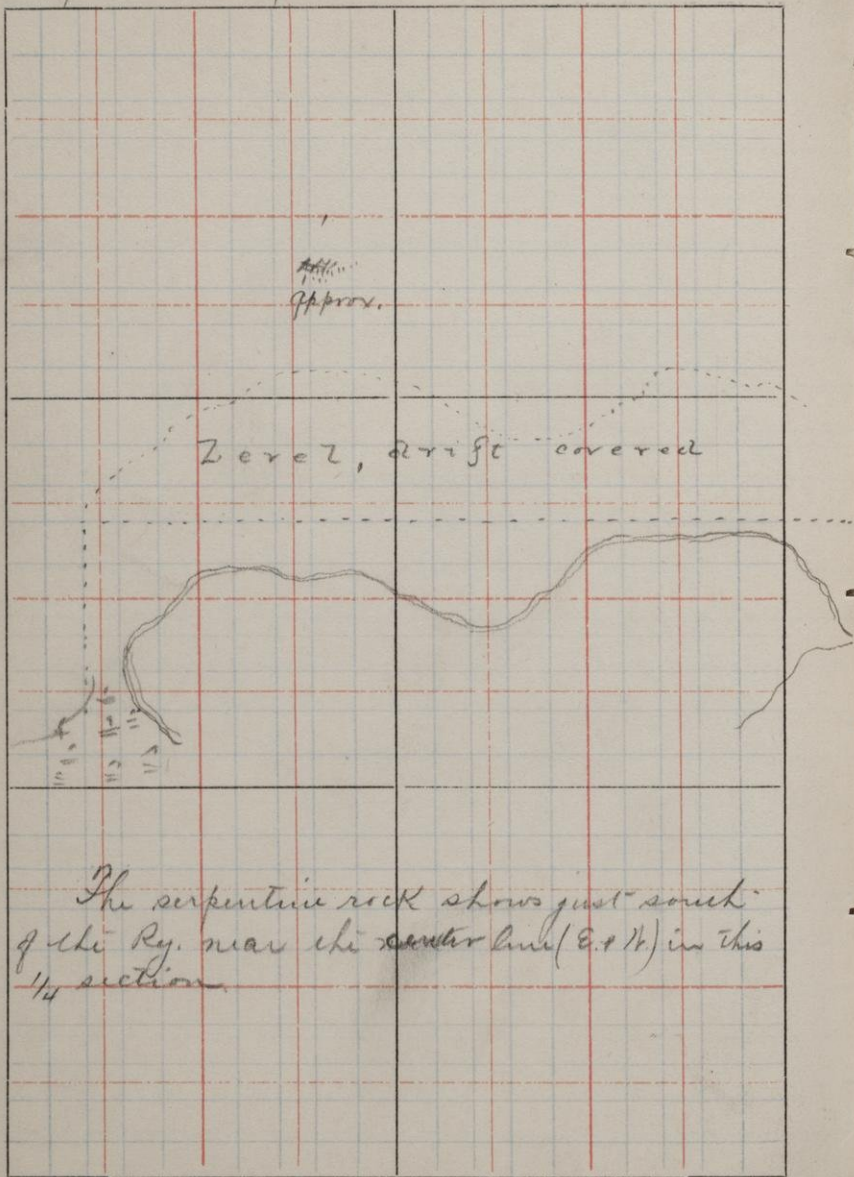 approx.
Level, drift covered
The serpentine rock shows just south
of the Ry. near the center line (E. & W.) in this
1/4 section